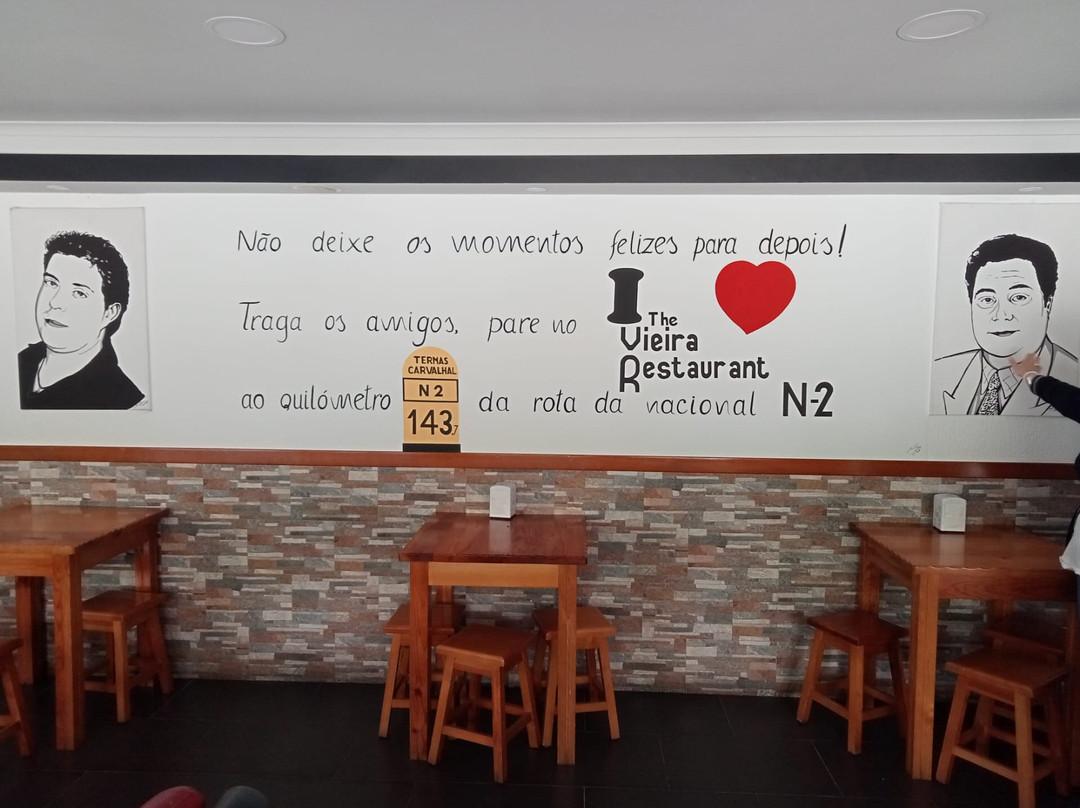 Não deixe os momentos felizes para depois!
Traga os amigos, pare no I The
Vieira
Restaurant
TERMAS
CARVALHAL
N 2
143,7
ao quilómetro da rota da nacional N-2